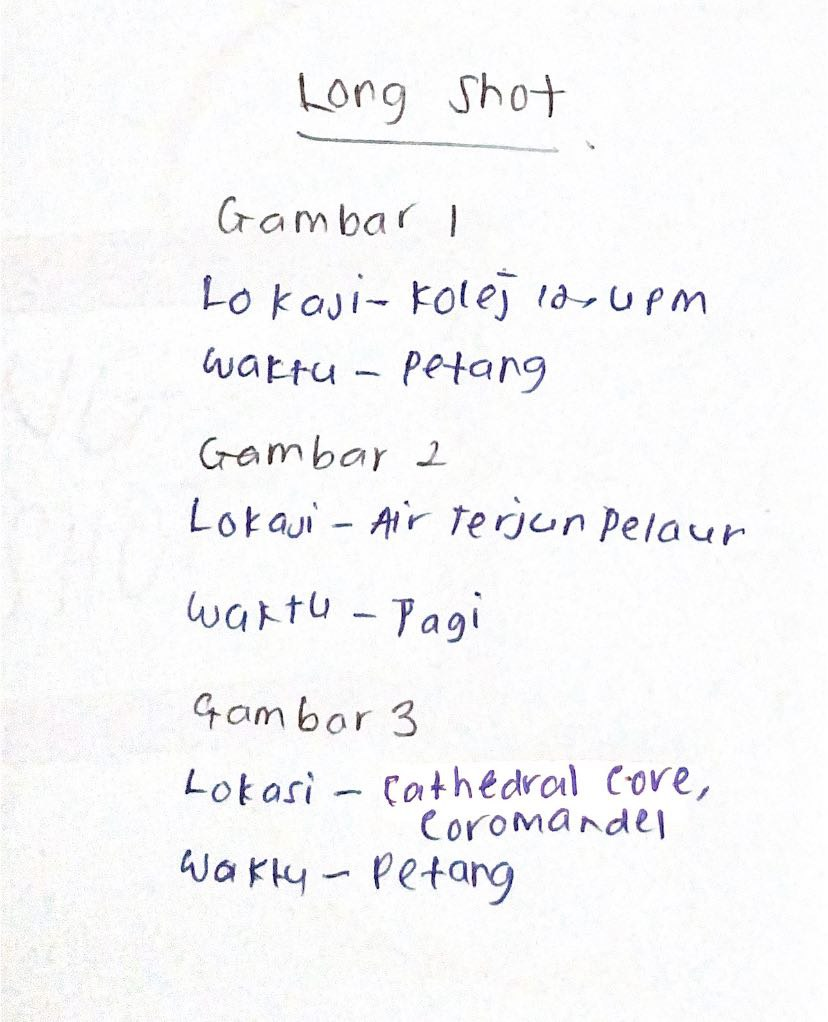 Long Shot
Gambar 1
Lokasi - Kolej 12, UPM
Waktu - Petang
Gambar 2
Lokasi - Air Terjun Pelaur
Waktu - Pagi
Gambar 3
Lokasi - Cathedral Core,
Coromandel
Waktu - Petang